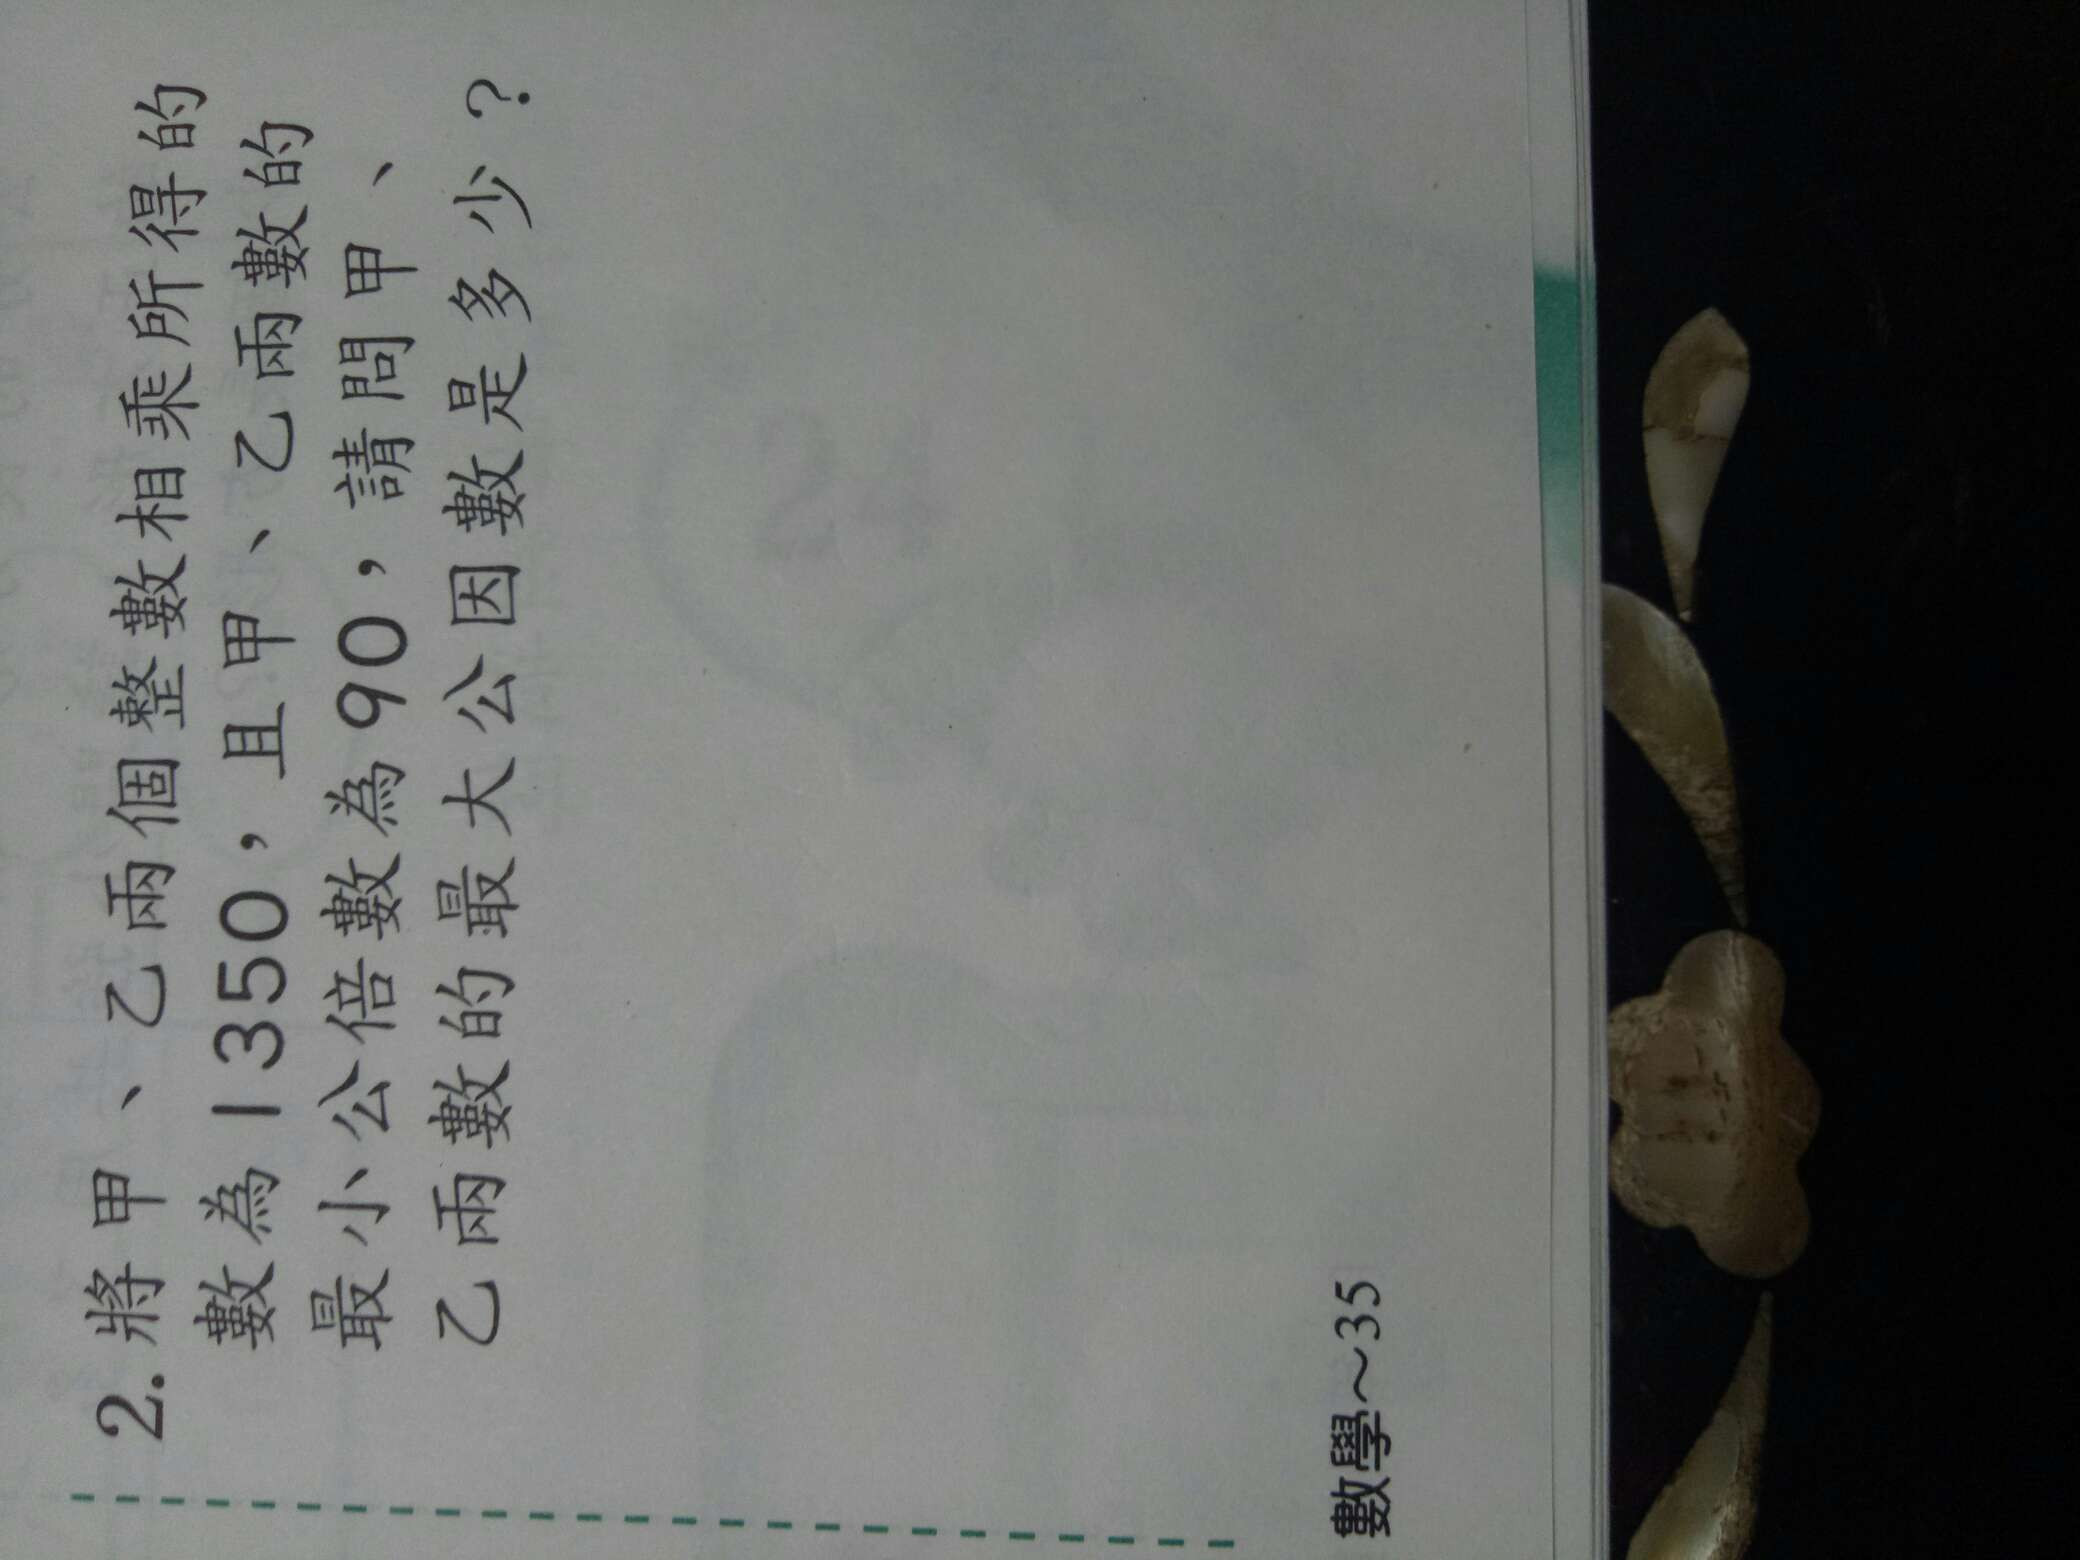 2. 將甲、乙兩個整數相乘所得的
數為1350，且甲、乙兩數的
最小公倍數為90，請問甲、
乙兩數的最大公因數是多少？
數學～35